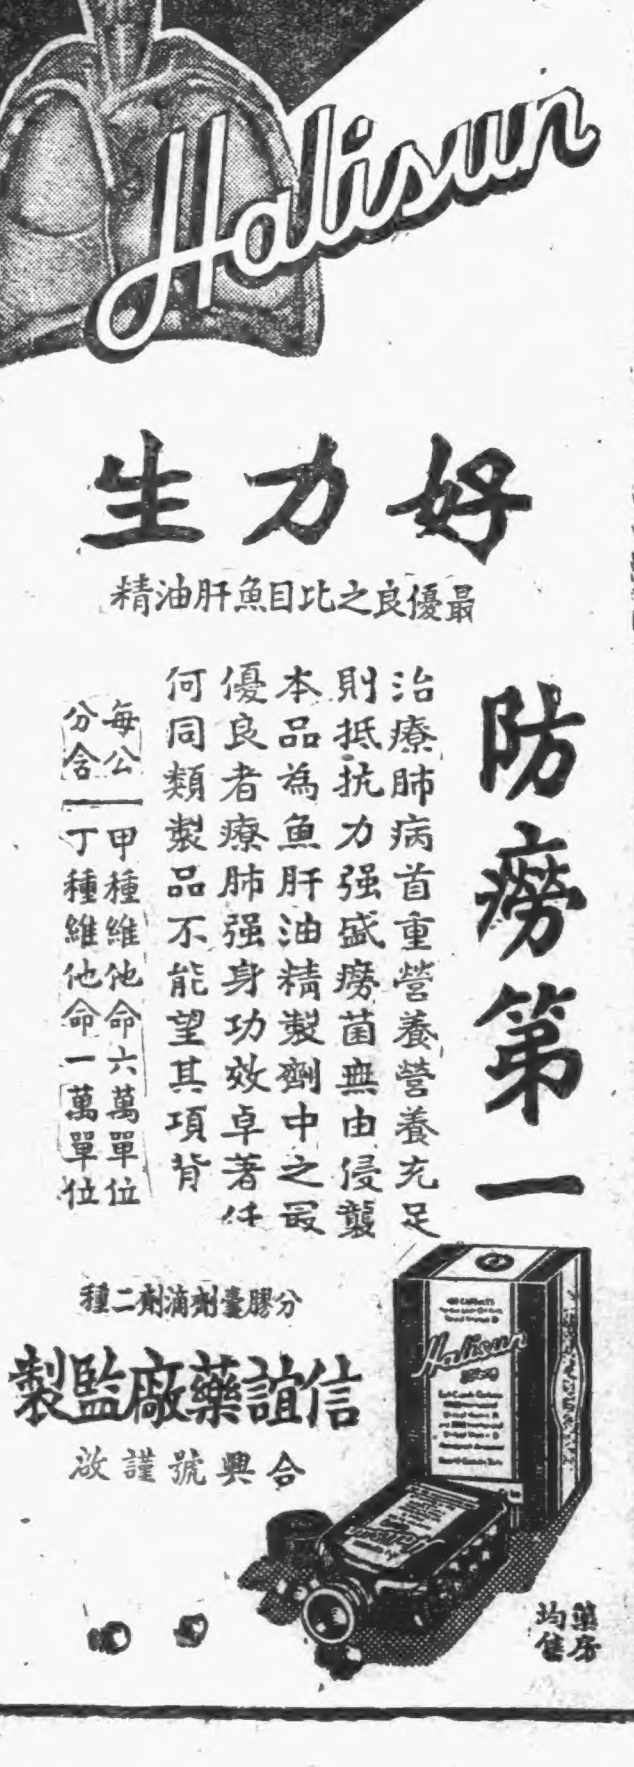 Halisun
好力生
最優良之比目魚肝油精
防癆第一
治療肺病首重營養營養充足
則抵抗力强盛癆菌無由侵襲
本品為魚肝油精製劑中之最
優良者療肺强身功效卓著任
何同類製品不能望其項背
每公分含—甲種維他命六萬單位
丁種維他命一萬單位
分膠囊劑滴劑二種
信誼藥廠監製
合興號謹啟
Halisun
藥房均售